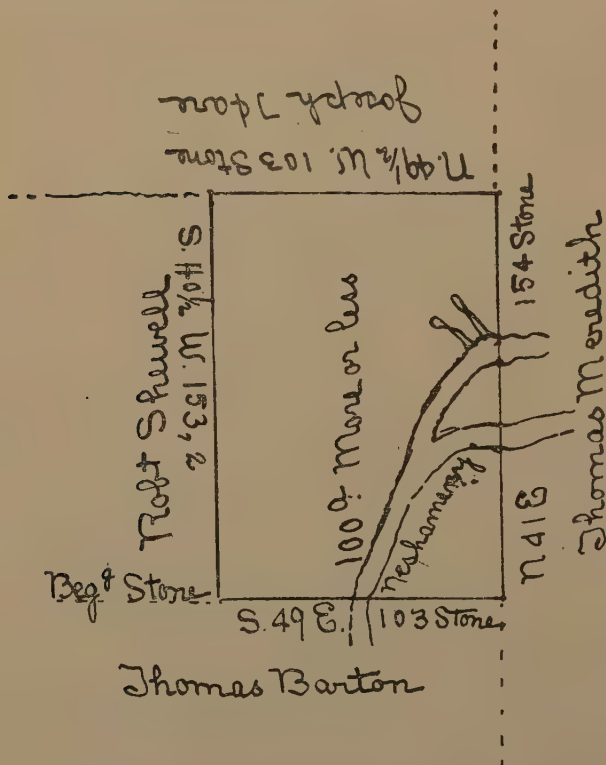 Joseph Hare
N. 49½ W. 103 Stone
Robt Shewell
S. 40½ W. 153,2
100 a More or less
154 Stone
Thomas Meredith
N 41 E
Neshaminy
Begg Stone
S. 49 E. 103 Stone
Thomas Barton